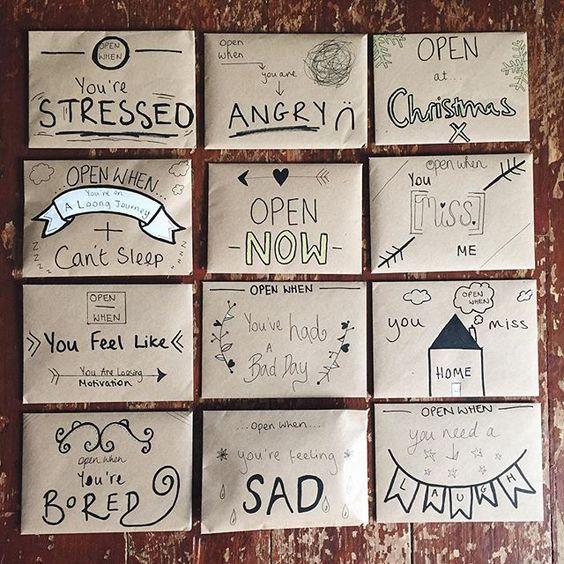 OPEN
WHEN
You're
STRESSED
Open
when
you are
ANGRY
OPEN
at...
Christmas
X
OPEN WHEN...
You're on
A Loong Journey
+
Can't Sleep
z z z
z z z
OPEN
NOW
Open when
You
Miss
ME
OPEN
WHEN
You Feel Like
You Are Loosing
Motivation
OPEN WHEN
You've had
A
Bad Day
OPEN
WHEN
you miss
HOME
open when
You're
BORED
...Open when...
you're feeling
SAD
OPEN WHEN
you need a
LAUGH